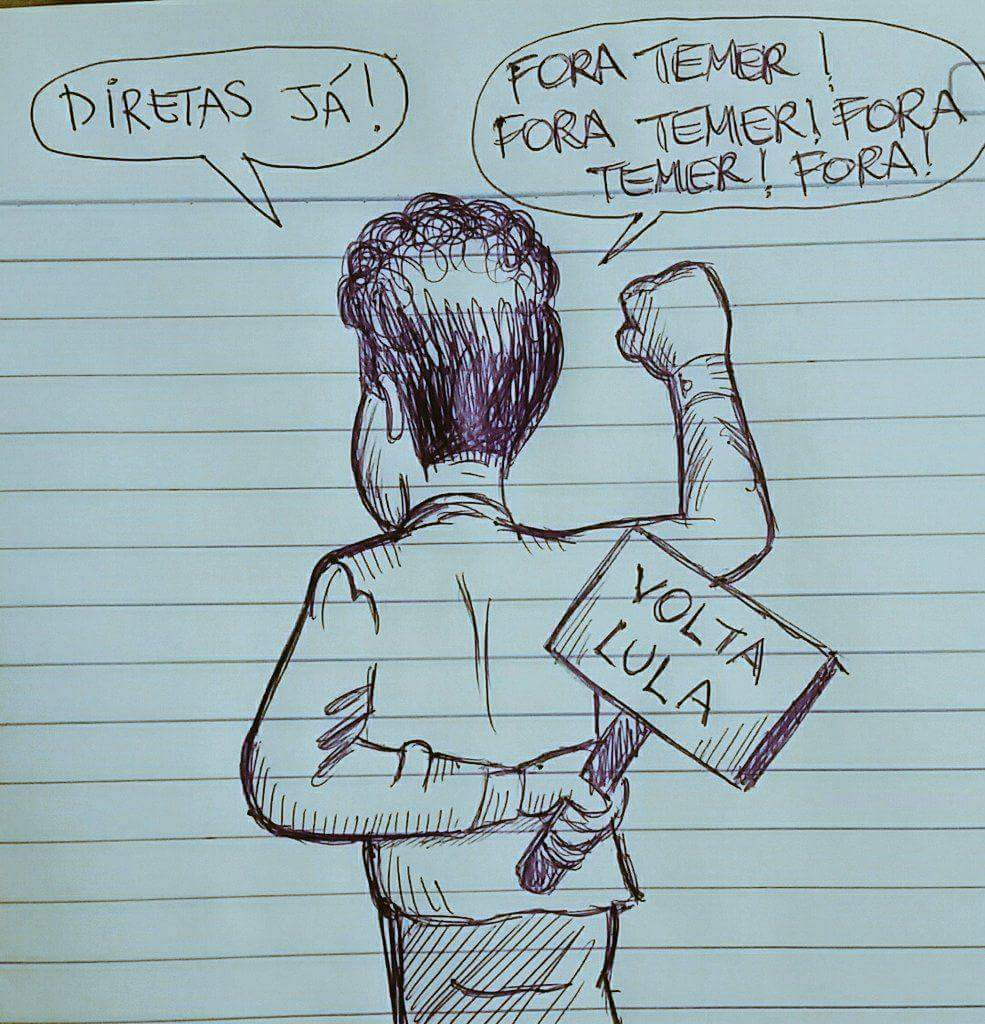 DIRETAS JÁ!
FORA TEMER!
FORA TEMER! FORA
TEMER! FORA!
VOLTA
LULA